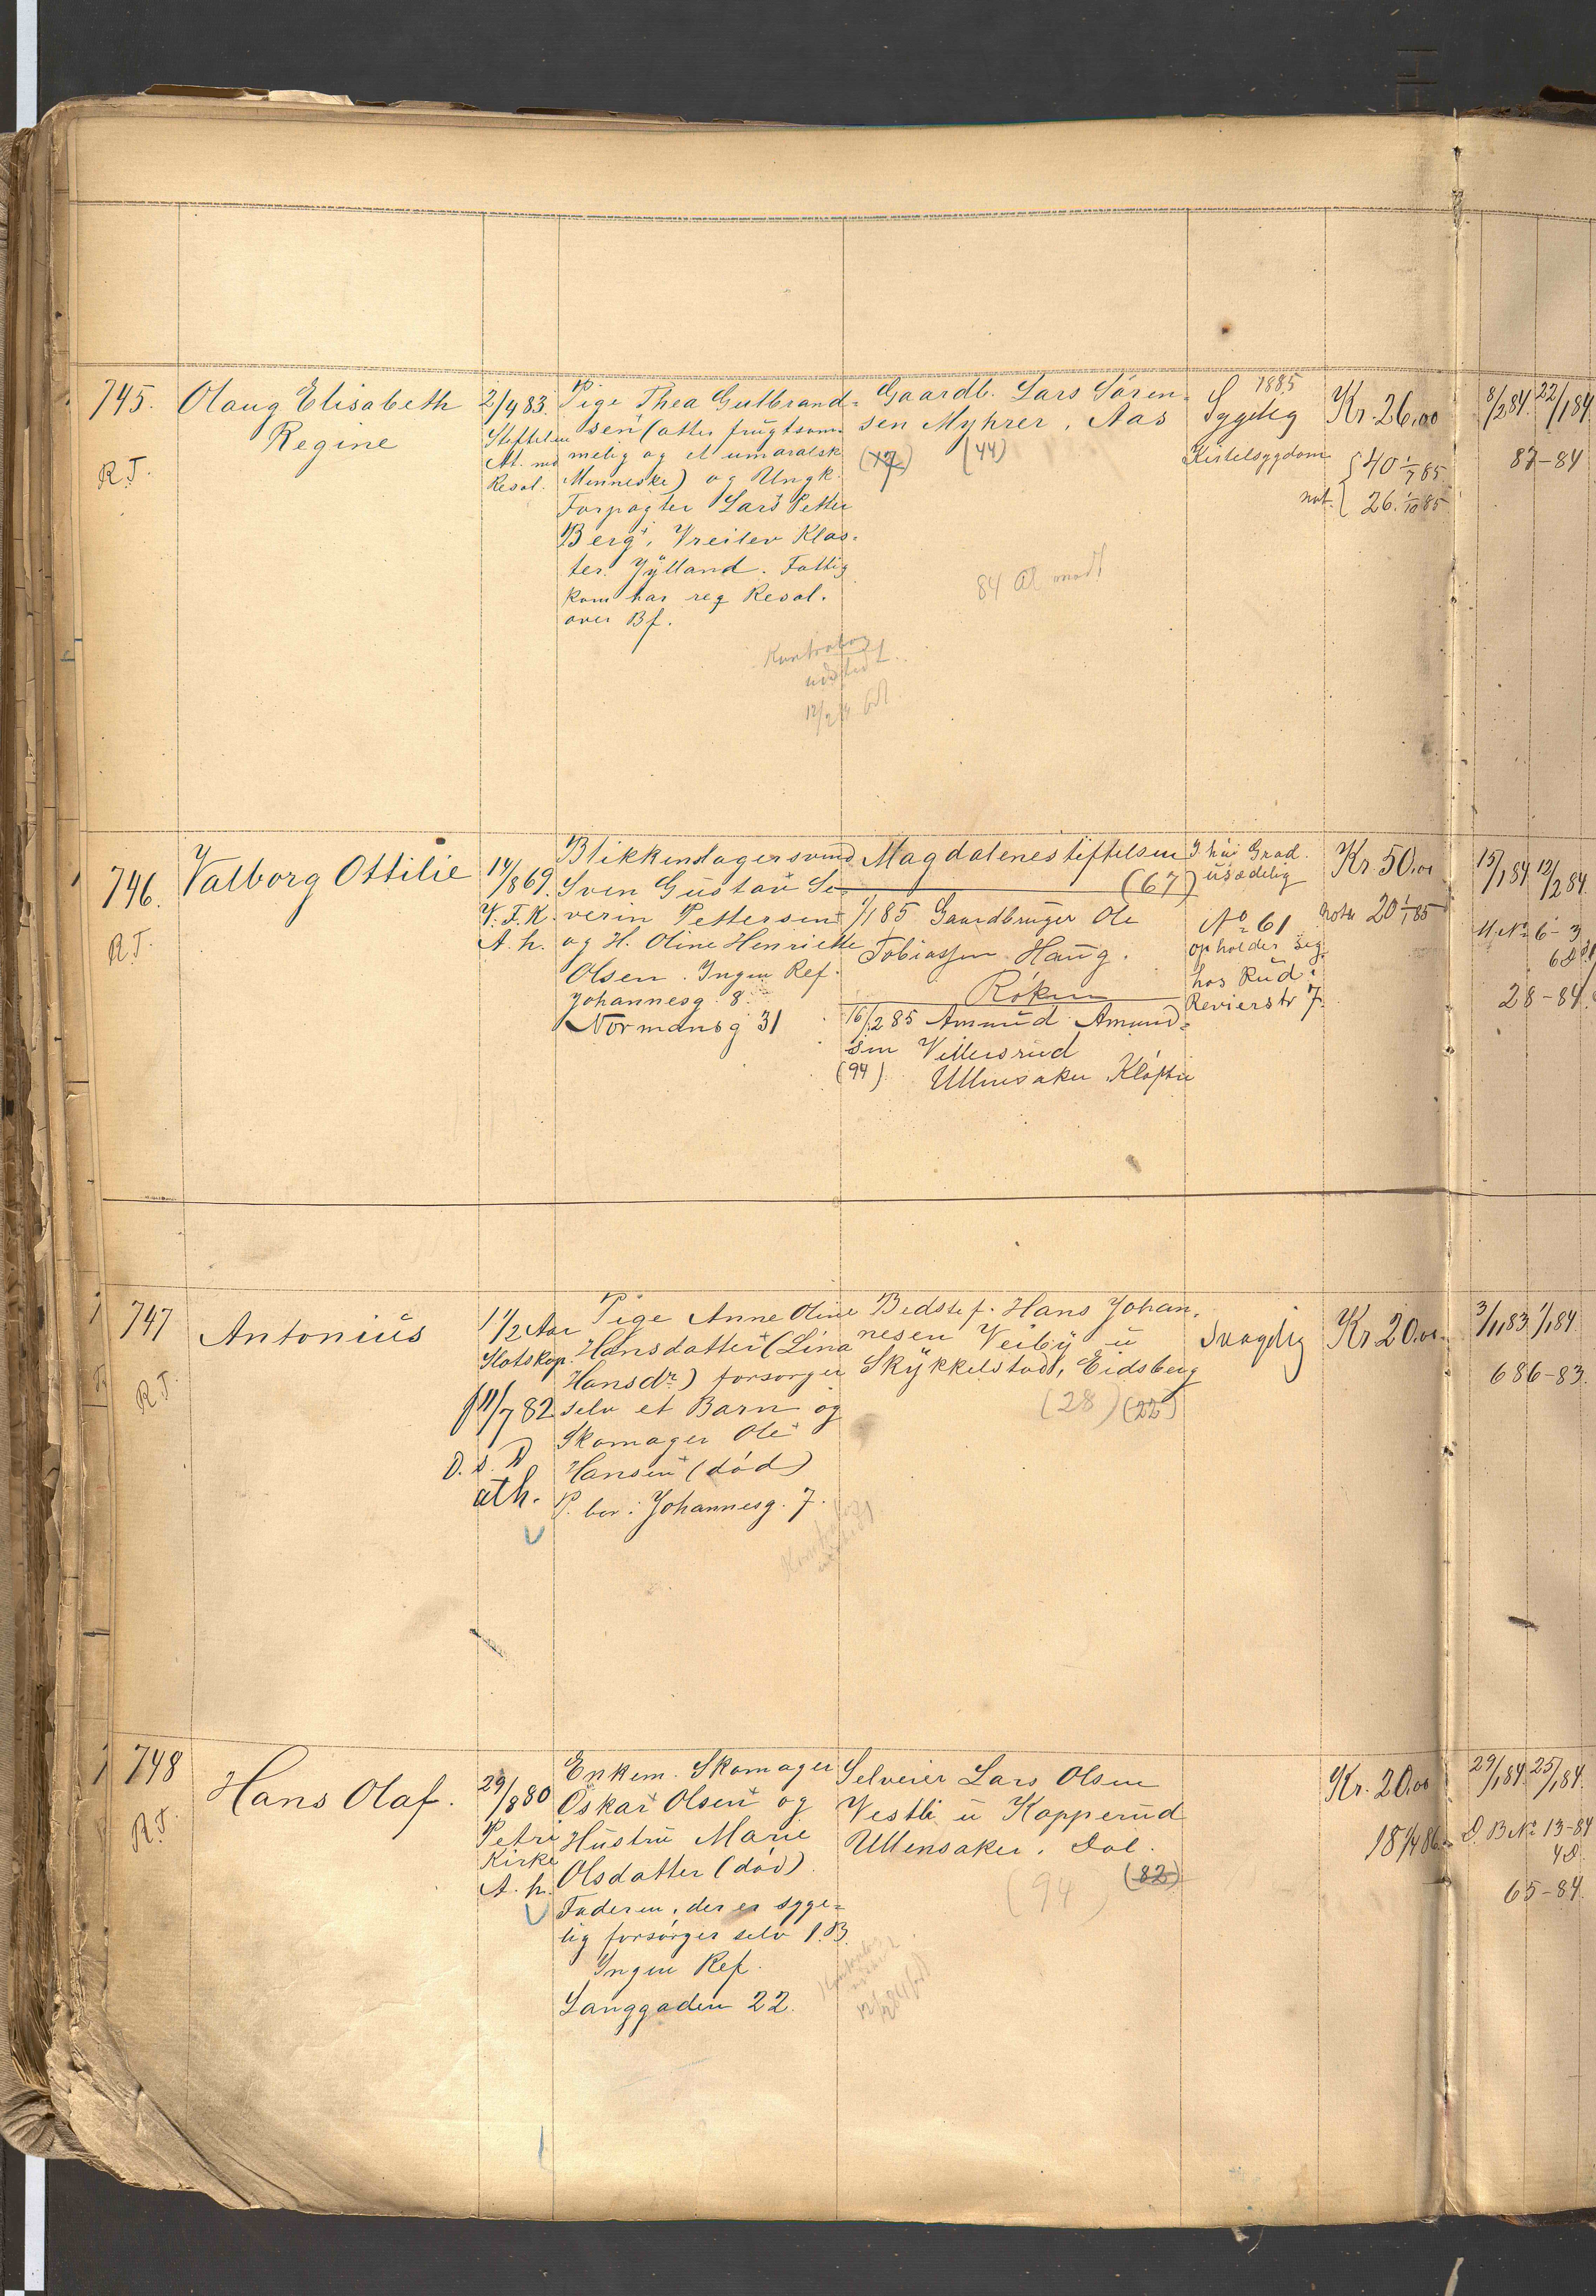 745.
R.T.
Olaug Elisabeth
Regine
2/4 83.
Stiftelsen
Resol.
Pige Thea Gulbrand-
sen (atter frugtsom-
melig og et umoralsk
Menneske) og Ungk.
Forpagter Lars Petter
Berg, Vreilev Klos-
ter. Jylland. Fattig
kom har reg Resol.
over Bf.
Kontrabog
udstedt
Gaardb. Lars Sören-
sen Myhrer, Aas
(17) (44)
84
1885
Sygelig
Kirtelsygdom
Kr. 26.00
40 1/7 85
not. 26. 1/10 85
8/2 84. 22/1 84
87-84
746.
R.T.
Valborg Ottilie
14/8 69.
V. F. K.
A. h.
Blikkenslagersvend
Sven Gustav Se-
verin Pettersen
og H. Oline Henriette
Olsen. Ingen Ref.
Johannesg. 8.
Normansg 31
Magdalenestiftelsen
(67)
1/1 85 Gaardbruger Ole
Tobiassen Haug.
Röken
16/2 85 Amund Amund-
sen Villersrud
(94) Ullensaker Klöften
I høi Grad.
usædelig
No 61
opholder seg
hos Rud
Revierstr 7.
Kr. 50.00
Nota 20 1/1 85
15/1 84 12/2 84.
M. No 6-3
28-84.
747
R.T.
Antonius
1 1/2 Aar
Slotskap.
f 11/7 82
D. s. D
ath.
Pige Anne Oline
Hansdatter (Lina
Hansdr.) forsorger
selv et Barn og
Skomager Ole
Hansen (død)
P. bor: Johannesg. 7.
Bedstef. Hans Johan-
nesen Veiby u
Skykkelstad, Eidsberg
(28) (22)
Svagelig
Kr 20.00
3/11 83 1/1 84.
686-83.
748
R.T.
Hans Olaf.
29/8 80
Petri
Kirke
A. h.
Enkem. Skomager
Oskar Olsen og
Hustru Marie
Olsdatter (död).
Faderen, der er syge-
lig forsörger selv 1. B.
Ingen Ref.
Langgaden 22.
Selveier Lars Olsen
Vestli u Kopperud
Ullensaker. Dal.
(94) (82)
Kr. 20.00
18 1/4 86
29/1 84. 25/1 84.
D. B No 13-84
4D.
65-84.